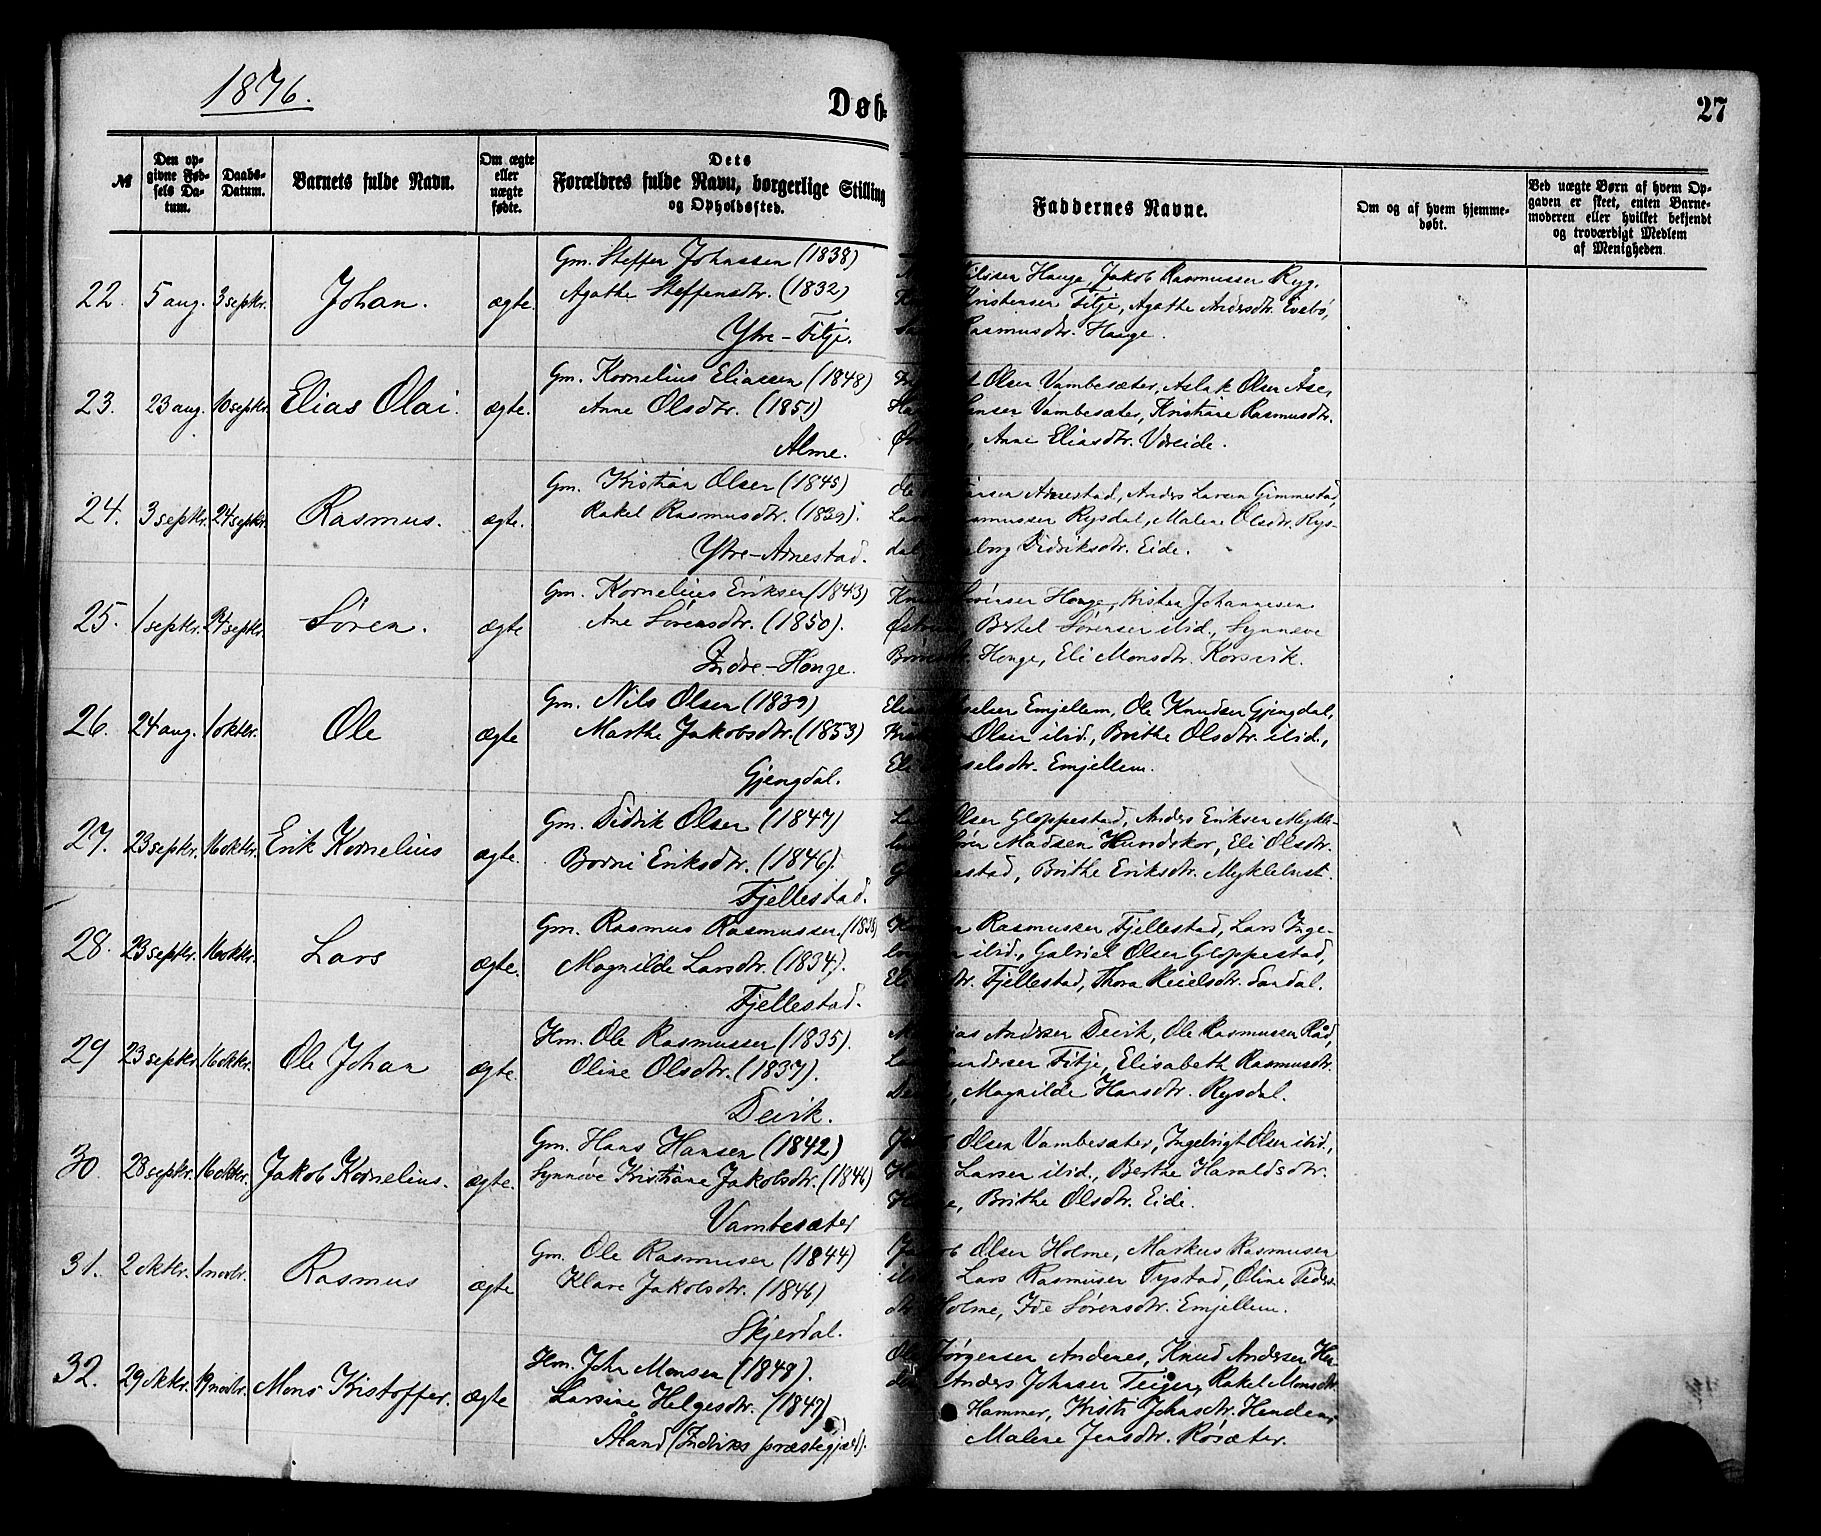 1876.
Døb-
27
№
Den op-
givne Fød-
sels Da-
tum.
Daabs-
Datum.
Barnets fulde Navn.
Om ægte
eller
uægte
fødte.
Dets
Forældres fulde Navn, borgerlige Stilling
og Opholdssted.
Faddernes Navne.
Om og af hvem hjemme-
døbt.
Ved uægte Børn af hvem Op-
gaven er skeet, enten Barne-
moderen eller hvilket bekjendt
og troværdigt Medlem
af Menigheden.
22. 5 aug. 3 septbr. Johan. ægte.
Gm. Steffen Johnssen (1838)
Agathe Steffensdtr. (1832)
Ytre-Fitje.
Hauge, Jakob Rasmussen Ryg,
Kristensen Fitje, Agathe Andersdtr. Evebø,
Rasmusdtr. Hauge.
23. 23 aug. 10 septbr. Elias Olai. ægte.
Gm. Kornelius Eliassen (1848)
Anne Olsdtr. (1851)
Alme.
Olsen Vambesæter, Aslak Olsen Åse,
Vambesæter, Kristiane Rasmusdtr.
Anne Eliasdtr. Voreide.
24. 3 septbr. 24 septbr. Rasmus. ægte.
Gm. Kristian Olsen (1845)
Rakel Rasmusdtr. (1839).
Ytre-Arnestad.
Ole Arnestad, Anders Larsen Gimmestad,
Rysdal, Malene Olsdtr. Rys-
dal Didriksdtr. Eide.
25. 1 septbr. 24 septbr. Søren. ægte
Gm. Kornelius Eriksen (1843)
Ane Sørensdtr. (1850).
Indre-Honge.
Sørensen Honge, Kristen Johannesen
Bertel Sørensen ibid., Synneve
Honge, Eli Monsdtr. Korsvik.
26. 24 aug. 1 oktbr. Ole ægte
Gm. Nils Olsen (1839)
Marthe Jakobsdtr. (1853)
Gjengdal.
Emjellem, Ole Knudsen Gjengdal,
Olsen ibid., Brithe Olsdtr. ibid.,
Eli Emjellem.
27. 23 septbr. 16 oktbr. Erik Kornelius ægte.
Gm. Didrik Olsen (1847)
Borni Eriksdtr. (1846).
Fjellestad.
Olsen Gloppestad, Anders Eriksen Mykle-
Madsen Hundskor, Eli Olsdtr.
Brithe Eriksdtr. Myklebust.
28. 23 septbr. 16 oktbr. Lars ægte.
Gm. Rasmus Rasmussen (1838)
Magnilde Larsdtr. (1834).
Fjellestad.
Rasmussen Fjellestad, Lars Inge-
ibid., Gabriel Olsen Gloppestad,
Eli Fjellestad, Thora Reielsdtr. Sandal.
29 23 septbr. 16 oktbr. Ole Johan ægte.
Hm. Ole Rasmussen (1835).
Oline Olsdtr. (1837).
Devik.
Andersen Devik, Ole Rasmussen Råd,
Fitje, Elisabeth Rasmusdtr.
Magnilde Hansdtr. Rysdal.
30. 28 septbr. 16 oktbr. Jakob Kornelius. ægte.
Gm. Hans Hansen (1842)
Synnøve Kristiane Jakobsdtr. (1846)
Vambesæter
Olsen Vambesæter, Ingebrigt Olsen ibid.,
Larsen ibid., Berthe Haraldsdtr.
Brithe Olsdtr. Eide.
31. 2 oktbr. 1 novbr. Rasmus ægte
Gm. Ole Rasmusen (1844)
Klare Jakobsdtr. (1846)
Skjerdal.
Olsen Holme, Markus Rasmusen
Lars Rasmusen Tystad, Oline Peders-
Holme, Ide Sørensdtr. Emjellem.
32. 29 oktbr. 19 novbr. Mons Kristoffer. ægte
Hm. John Monsen (1848).
Larsine Helgesdtr. (1847)
Åland (Indviks præstegjæld).
Jørgensen Andenes, Knud Andersen Hen-
Anders Johnsen Teigen, Rakel Monsdtr.
Hammer, Kristi Johnsdtr. Henden,
Malene Jensdtr. Rosæter.